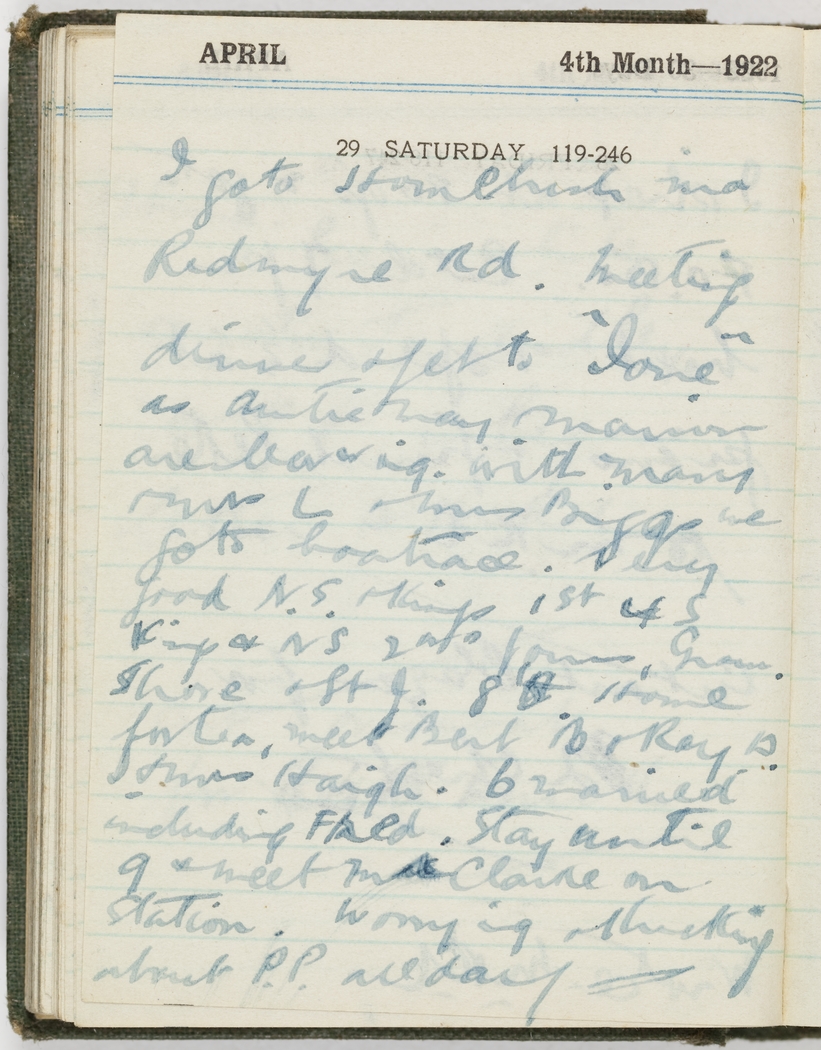 APRIL 4th Month—1922
29 SATURDAY 119-246
I go to Homebush
Redmyre Rd. Meeting
dinner & get to "Ione"
as Auntie May Marion
are leaving. with many
Biggs we
go to boatrace. Very
good N.S. & Kings 1st 4
Kings & N.S. fours, Gram.
Shore & St J. 8 Home
for tea, meet Bert B. & Ray B.
& Haigh. 6 married
including Fred. Stay until
9 & meet Claire on
station. Worrying & thinking
about P.P. all day